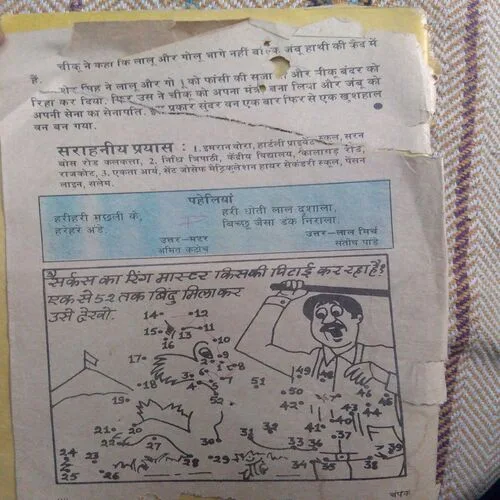 चीकू ने कहा कि लालू और गोलू भागे नहीं बल्कि जंबू हाथी की कैद में
हैं. शेर सिंह ने लालू और गो को फांसी की सजा और चीकू बंदर को
रिहा कर दिया. फिर उस ने चीकू को अपना मंत्री बना लिया और जंबू को
अपनी सेना का सेनापति. इस प्रकार सुंदर वन एक बार फिर से एक खुशहाल
वन बन गया.
सराहनीय प्रयास : 1. इमरान वोरा, हार्टली प्राइवेट स्कूल, सरत
बोस रोड कलकत्ता, 2. निधि त्रिपाठी, केंद्रीय विद्यालय, कालागड़ रोड,
राजकोट, 3. एकता आर्य, सेंट जोसेफ मैट्रिकुलेशन हायर सेकंडरी स्कूल, पेंसन
लाइन, सलेम.
पहेलियां
हरीहरी मछली के,
हरेहरे अंडे.
उत्तर–मटर
अमित कठोच
हरी धोती लाल दुशाला,
बिच्छू जैसा डंक निराला.
उत्तर–लाल मिर्च
संतोष पांडे
सर्कस का रिंग मास्टर किसकी पिटाई कर रहा है?
एक से 52 तक बिंदु मिलाकर
उसे देखो.
14 12
15 13 11
16 10
17 9
2 1 8
3 6 7
18 4 5
19 52 51
49 48 47 46
50 45
42 43 44
21 20 41
22 27 30 31 32 40 37
24 23 33 36 39
25 26 28 29 34 35 38
चांद
चंपक